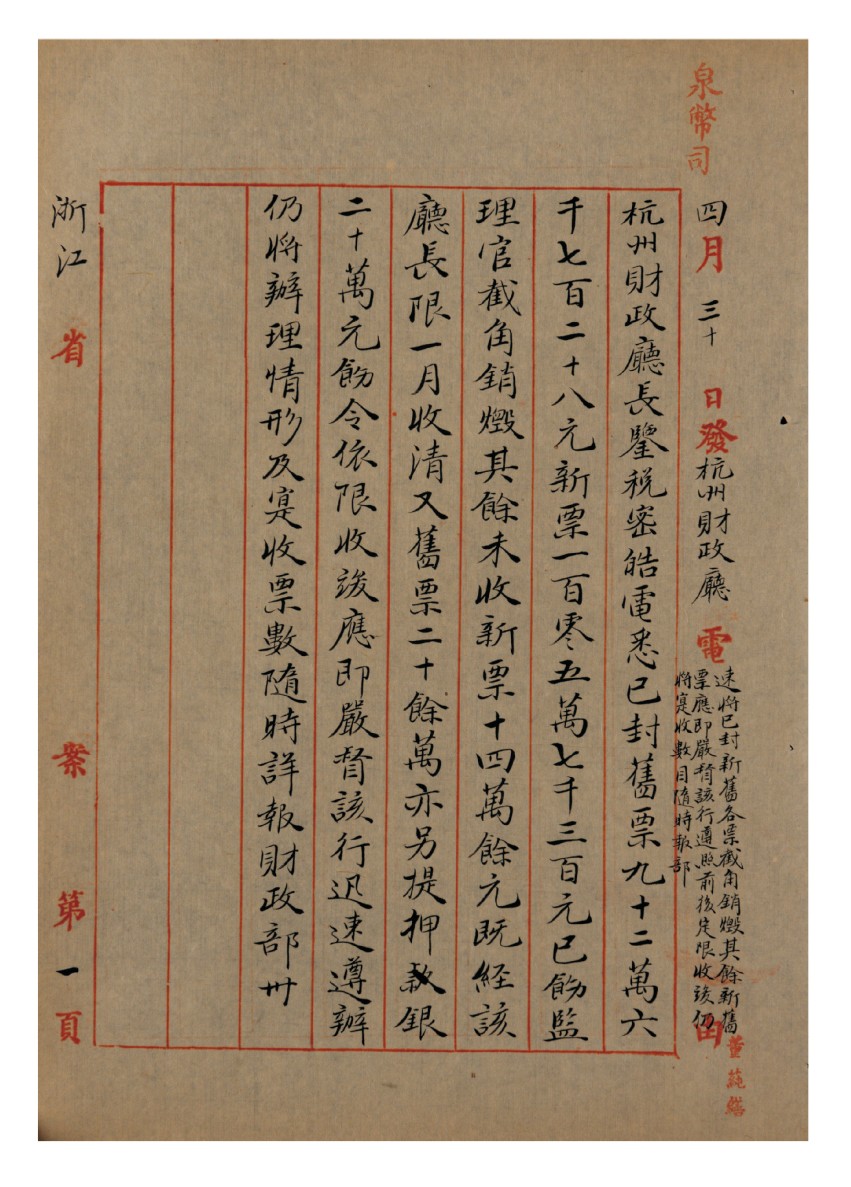 泉幣司
四月三十日發杭州財政廳電
速將已封新舊各票截角銷燬其餘新舊
票應即嚴督該行遵照前後定限收竣仍
將寔收數目隨時報部
由
董蒓繕
杭州財政廳長鑒税密皓電悉已封舊票九十二萬六
千七百二十八元新票一百零五萬七千三百元已飭監
理官截角銷燬其餘未收新票十四萬餘元既経該
廳長限一月收清又舊票二十餘萬亦另提押款銀
二十萬元飭令依限收竣應即嚴督該行迅速遵辦
仍將辦理情形及寔收票數隨時詳報財政部卅
浙江省 案 第一頁